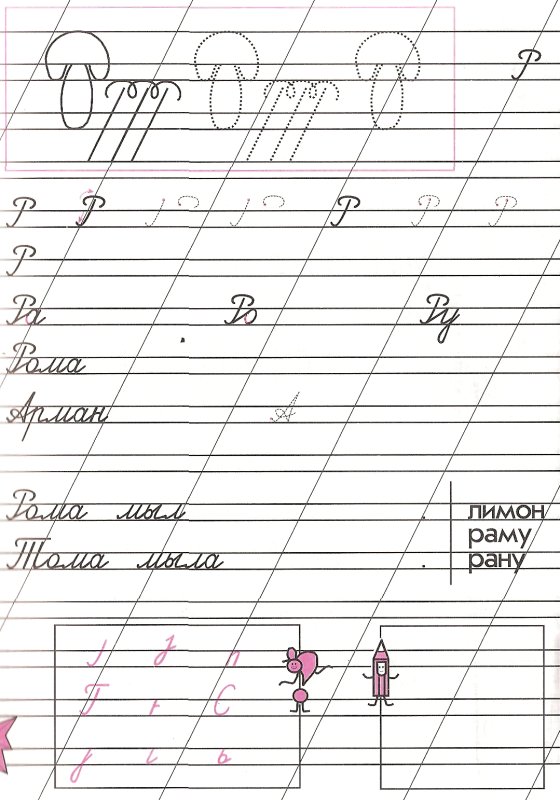 Р
Р Р Р Р Р
Р
Ра Ро Ру
Рома
Арман А
Рома мыл . лимон
раму
Тома мыла . рану
Г С